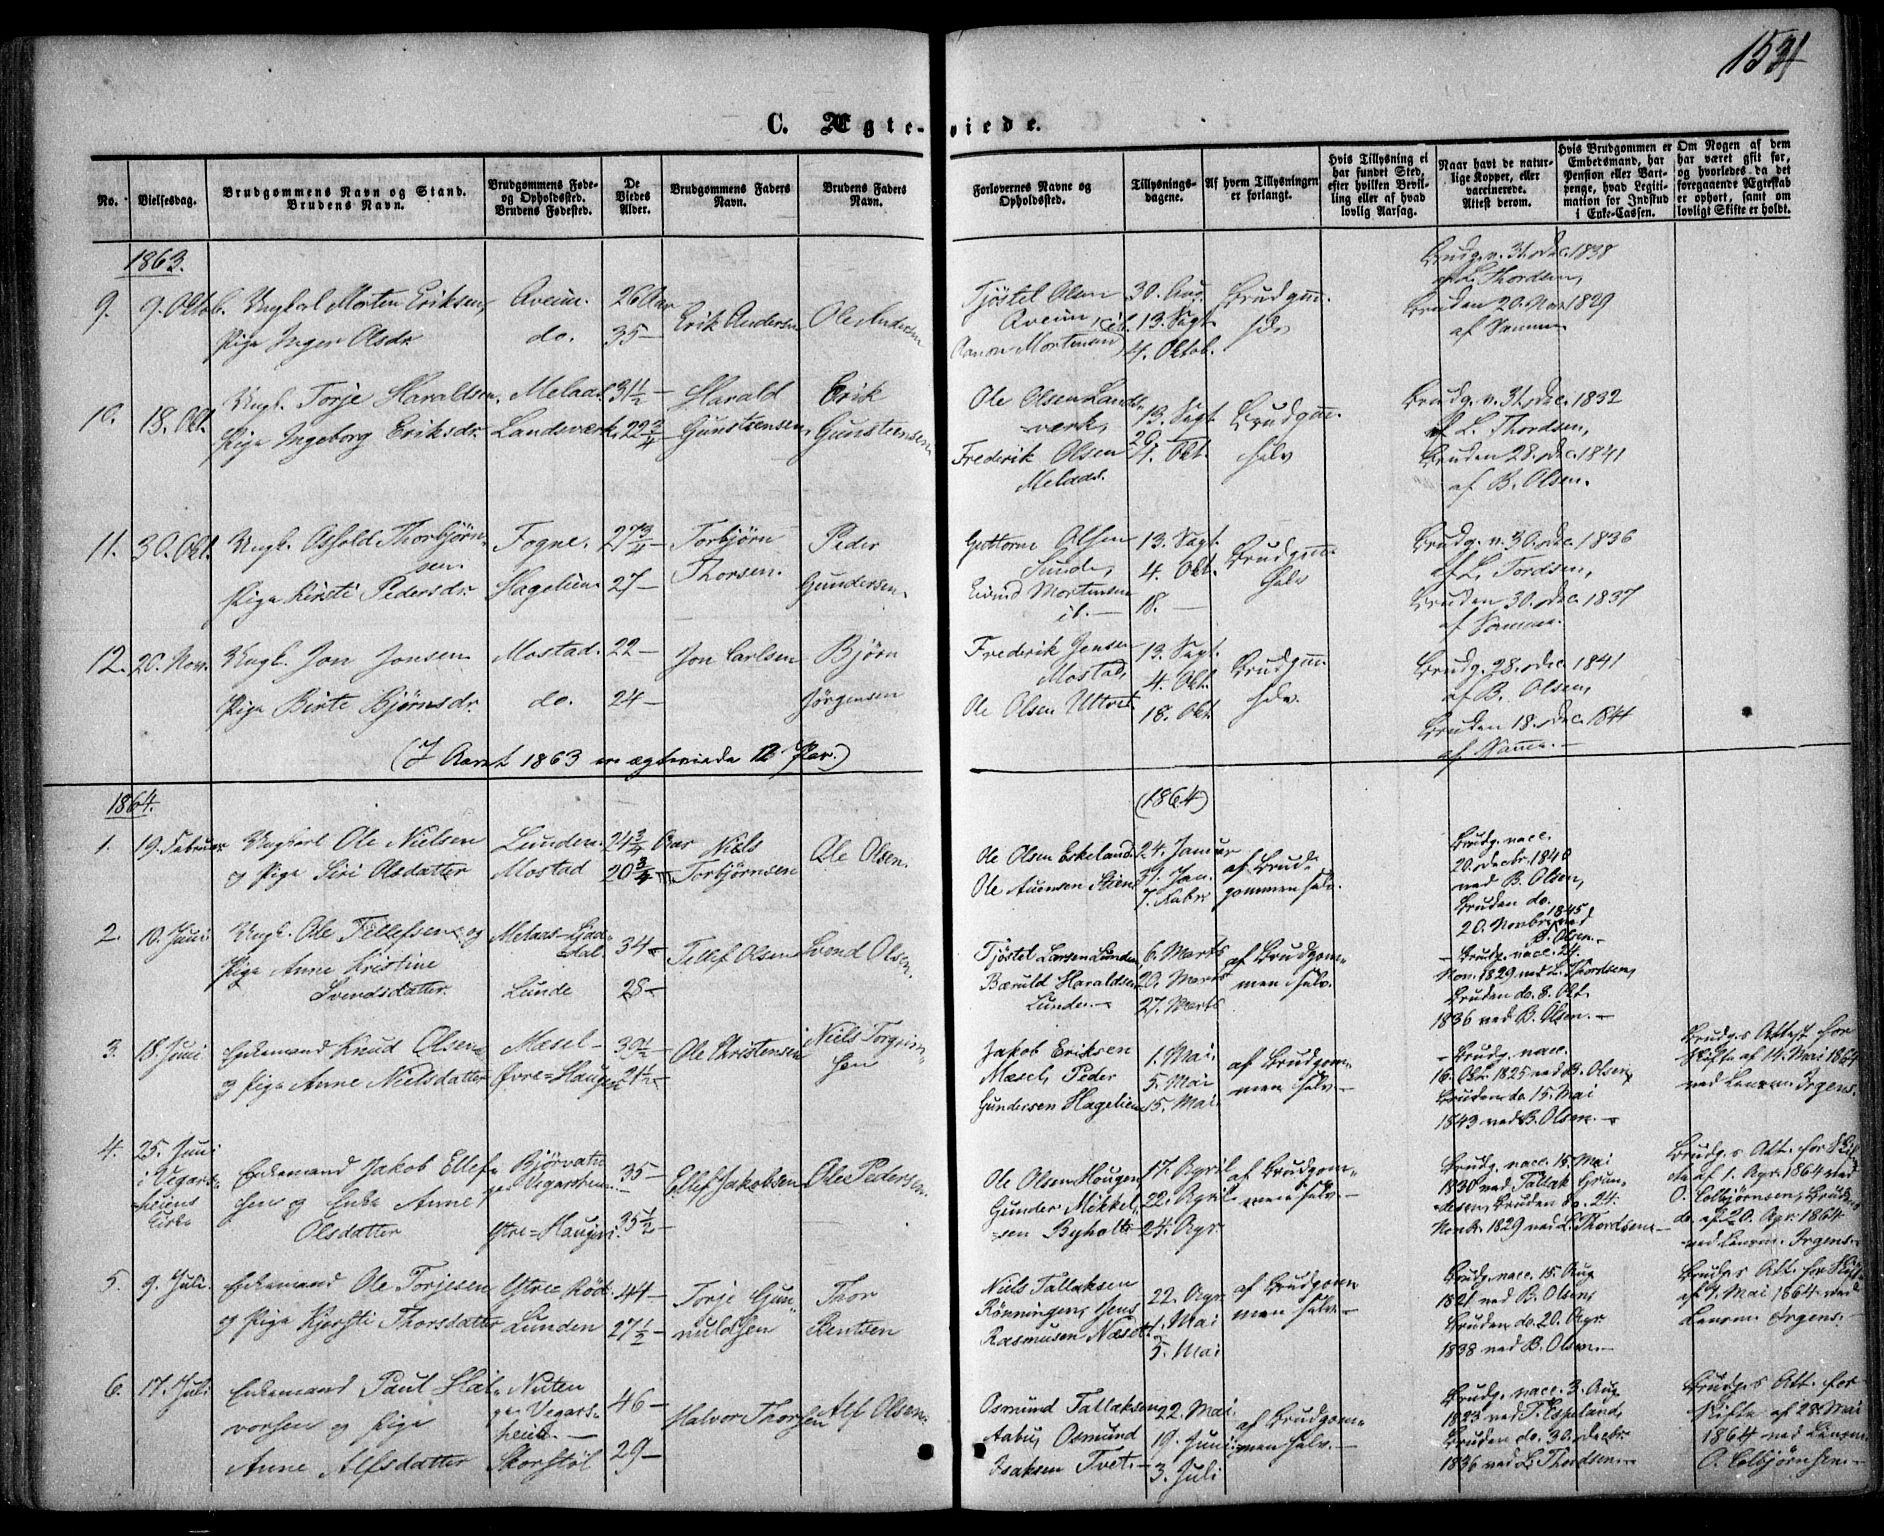 154
C. Ægte-viede.
No.
Vielsesdag.
Brudgommens Navn og Stand.
Brudens Navn.
Brudgommens Føde-
og Opholdssted.
Brudens Fødested.
De
Viedes
Alder.
Brudgommens Faders
Navn.
Brudens Faders
Navn.
Forlovernes Navne og
Opholdssted.
Tillysnings-
dagene.
Af hvem Tillysningen
er forlangt.
Hvis Tillysning ei
har fundet Sted,
efter hvilken Bevil-
ling eller af hvad
lovlig Aarsag.
Naar havt de natur-
lige Kopper, eller
vaccinerede.
Attest derom.
Hvis Brudgommen er
Embedsmand, har
Pension eller Vart-
penge, hvad Legiti-
mation for Indskud
i Enke-Cassen.
Om Nogen af dem
har været gift før,
og hvorledes da det
foregaaende Ægteskab
er ophørt, samt om
lovligt Skifte er holdt.
1863.
9. 9. Oktob. Ungkarl Morten Eriksen, Aveim. 26 Aar Erik Andersen Ole Andersen
Pige Inger Olsdr. do. 35 —
Tjøstel Olsen
Aveim,
Aanon Mortensen
30. Aug.
13. Sept.
4. Oktob.
Brudgm.
selv
Brudg. v. 31. Dec. 1838
af L. Thordsen,
Bruden 20. Nov. 1829
af Samme
10. 18. Okt. Ungk. Torje Haraldsen, Melaas 31 1/2 — Harald Gunstensen, Erik Gunsteensen
Pige Ingeborg Eriksdr. Landsværk 22 3/4 —
Ole Olsen Lands-
værk,
Frederik Olsen
Melaas.
13. Sept.
20. —
4. Okt.
Brudgm.
selv
Brudg. v. 31. Dec. 1832
af L. Thordsen,
Bruden 28. Dec. 1841
af B. Olsen.
11. 30. Okt. Ungk. Asfold Thorbjørn-
sen. Fogne. 27 3/4 — Torbjørn Thorsen. Peder Gundersen.
Pige Kirsti Pedersdr. Hageliin. 27 —
Guttorm Olsen
Sunde,
Eivind Mortensen
ib. —
13. Sept.
4. Okt.
18. —
Brudgm.
selv
Brudg. v. 30. Dec. 1836
af L. Tordsen,
Bruden 30. Dec. 1837
af Samme.
12. 20. Nov. Ungk. Jon Jonsen Mostad. 22 — Jon Carlsen Bjørn Jørgensen
Pige Birte Bjørnsdr. do. 24 —
Frederik Jensen
Mostad,
Ole Olsen Utvet
13. Sept.
4. Okt.
18. Okt.
Brudgm.
selv.
Brudg. 28. Dec. 1841
af B. Olsen,
Bruden 18. Dec. 1844
af Samme. —
(I Aaret 1863 ere ægteviede 12 Par.)
1864.
(1864)
1. 19. Februar Ungkarl Ole Nielsen Lunden. 24 3/4 Aar Niels Torbjørnsen Ole Olsen.
og Pige Siri Olsdatter Mostad 20 3/4 —
Ole Olsen Eskeland
Ole Aunensen Stien
24. Januar
31. Jan.
7. Feber
af Brud-
gommen selv.
Brudg. vacc.
20. Decbr. 1840
ved B. Olsen,
Bruden do.
20. Novbr. 1845 ved
B. Olsen. —
2. 10. Juni Ungk. Ole Tellefsen og Melaas Ljøs-
dal 34 — Tellef Olsen Svend Olsen.
Pige Anne Kristine
Svendsdatter. Lunde 28 —
Tjøstel Larsen Lunden
Bæruld Haraldsen
Lunden —
6. Marts
20. Marts
27. Marts
af Brudgom-
men selv.
— Brudg. vacc. 24.
Nov. 1829 ved L. Thordsen,
Bruden do. 8. Okt.
1836 ved B. Olsen. —
3. 18. Juni Enkemand Knud Olsen Mæsel — 39 1/2 — Ole Christensen Niels Torgrim-
sen
og Pige Anne Nielsdatter Øvre-Haugen 21 1/2 —
Jakob Eriksen
Mæsel, Peder
Gundersen Hagelien
1. Mai.
5. Mai
15. Mai
af Brudgom-
men selv. —
— Brudg. vacc.
16. Okt. 1825 ved B. Olsen,
Bruden do. 15. Mai
1843 ved B. Olsen. —
Brudgs Attest for
Skifte af 14. Mai 1864
ved Lensm. Irgens.
4. 25. Juni
i Vegars-
heiens
Kirke
Enkemand Jakob Ellef-
sen og Enke Anne
Olsdatter
Bjørvatn
pr Vegarsheien 35 —
Ytre-Haugen 35 1/2 —
Ellef Jakobsen Ole Pedersen.
Ole Olsen Haugen
Gunder Mikkel-
sen Byholt —
17. April
22. April
24. Apr.
af Brudgom-
men selv. —
Brudg. vacc. 15. Mai
1830 ved Tallak Grun-
desen, Bruden do. 24.
Novbr. 1829 ved L. Thordsen —
Brudg.s Att. for Skif-
te af 1. Apr. 1864 ved
O. Colbjørnsen, Brudens
do. af 20. Apr. 1864
ved Lensm. Irgens. —
5. 9. Juli. Enkemand Ole Torjesen Ytre Rød 44 — Torje Gun-
nuldsen Thor Bentsen
og Pige Kjersti Thorsdatter Lunden 27 1/2 —
Niels Tallaksen
Rønningen, Jens
Rasmussen Næset
22. Apr.
1. Mai
5. Mai
af Brudgom-
men selv. —
Brudg. vacc. 15. Aug
1821 ved B. Olsen,
Bruden do. 20. Apr
1838 ved B. Olsen. —
Brudgs Att. for Skifte
af 7. Mai 1864 ved
Lensm. Irgens. —
6. 17. Juli Enkemand Paul Hal-
vorsen og Pige
Anne Alfsdatter
Nuten
pr Vegars-
heien. — 46 —
Skorstøl 29 —
Halvor Thorsen Alf Olsen
Osmund Tallaksen
Aabu, Osmund
Isaksen Tvet. —
22. Mai
19. Juni
3. Juli
af Brudgom-
men selv. —
Brudg. vacc. 3. Aug.
1823 ved T. Espeland,
Bruden do. 30. Decbr
1836 ved L. Thordsen —
Brudgs Att. for
Skifte af 28. Mai
1864 ved Lensm.
O. Colbjørnsen. —